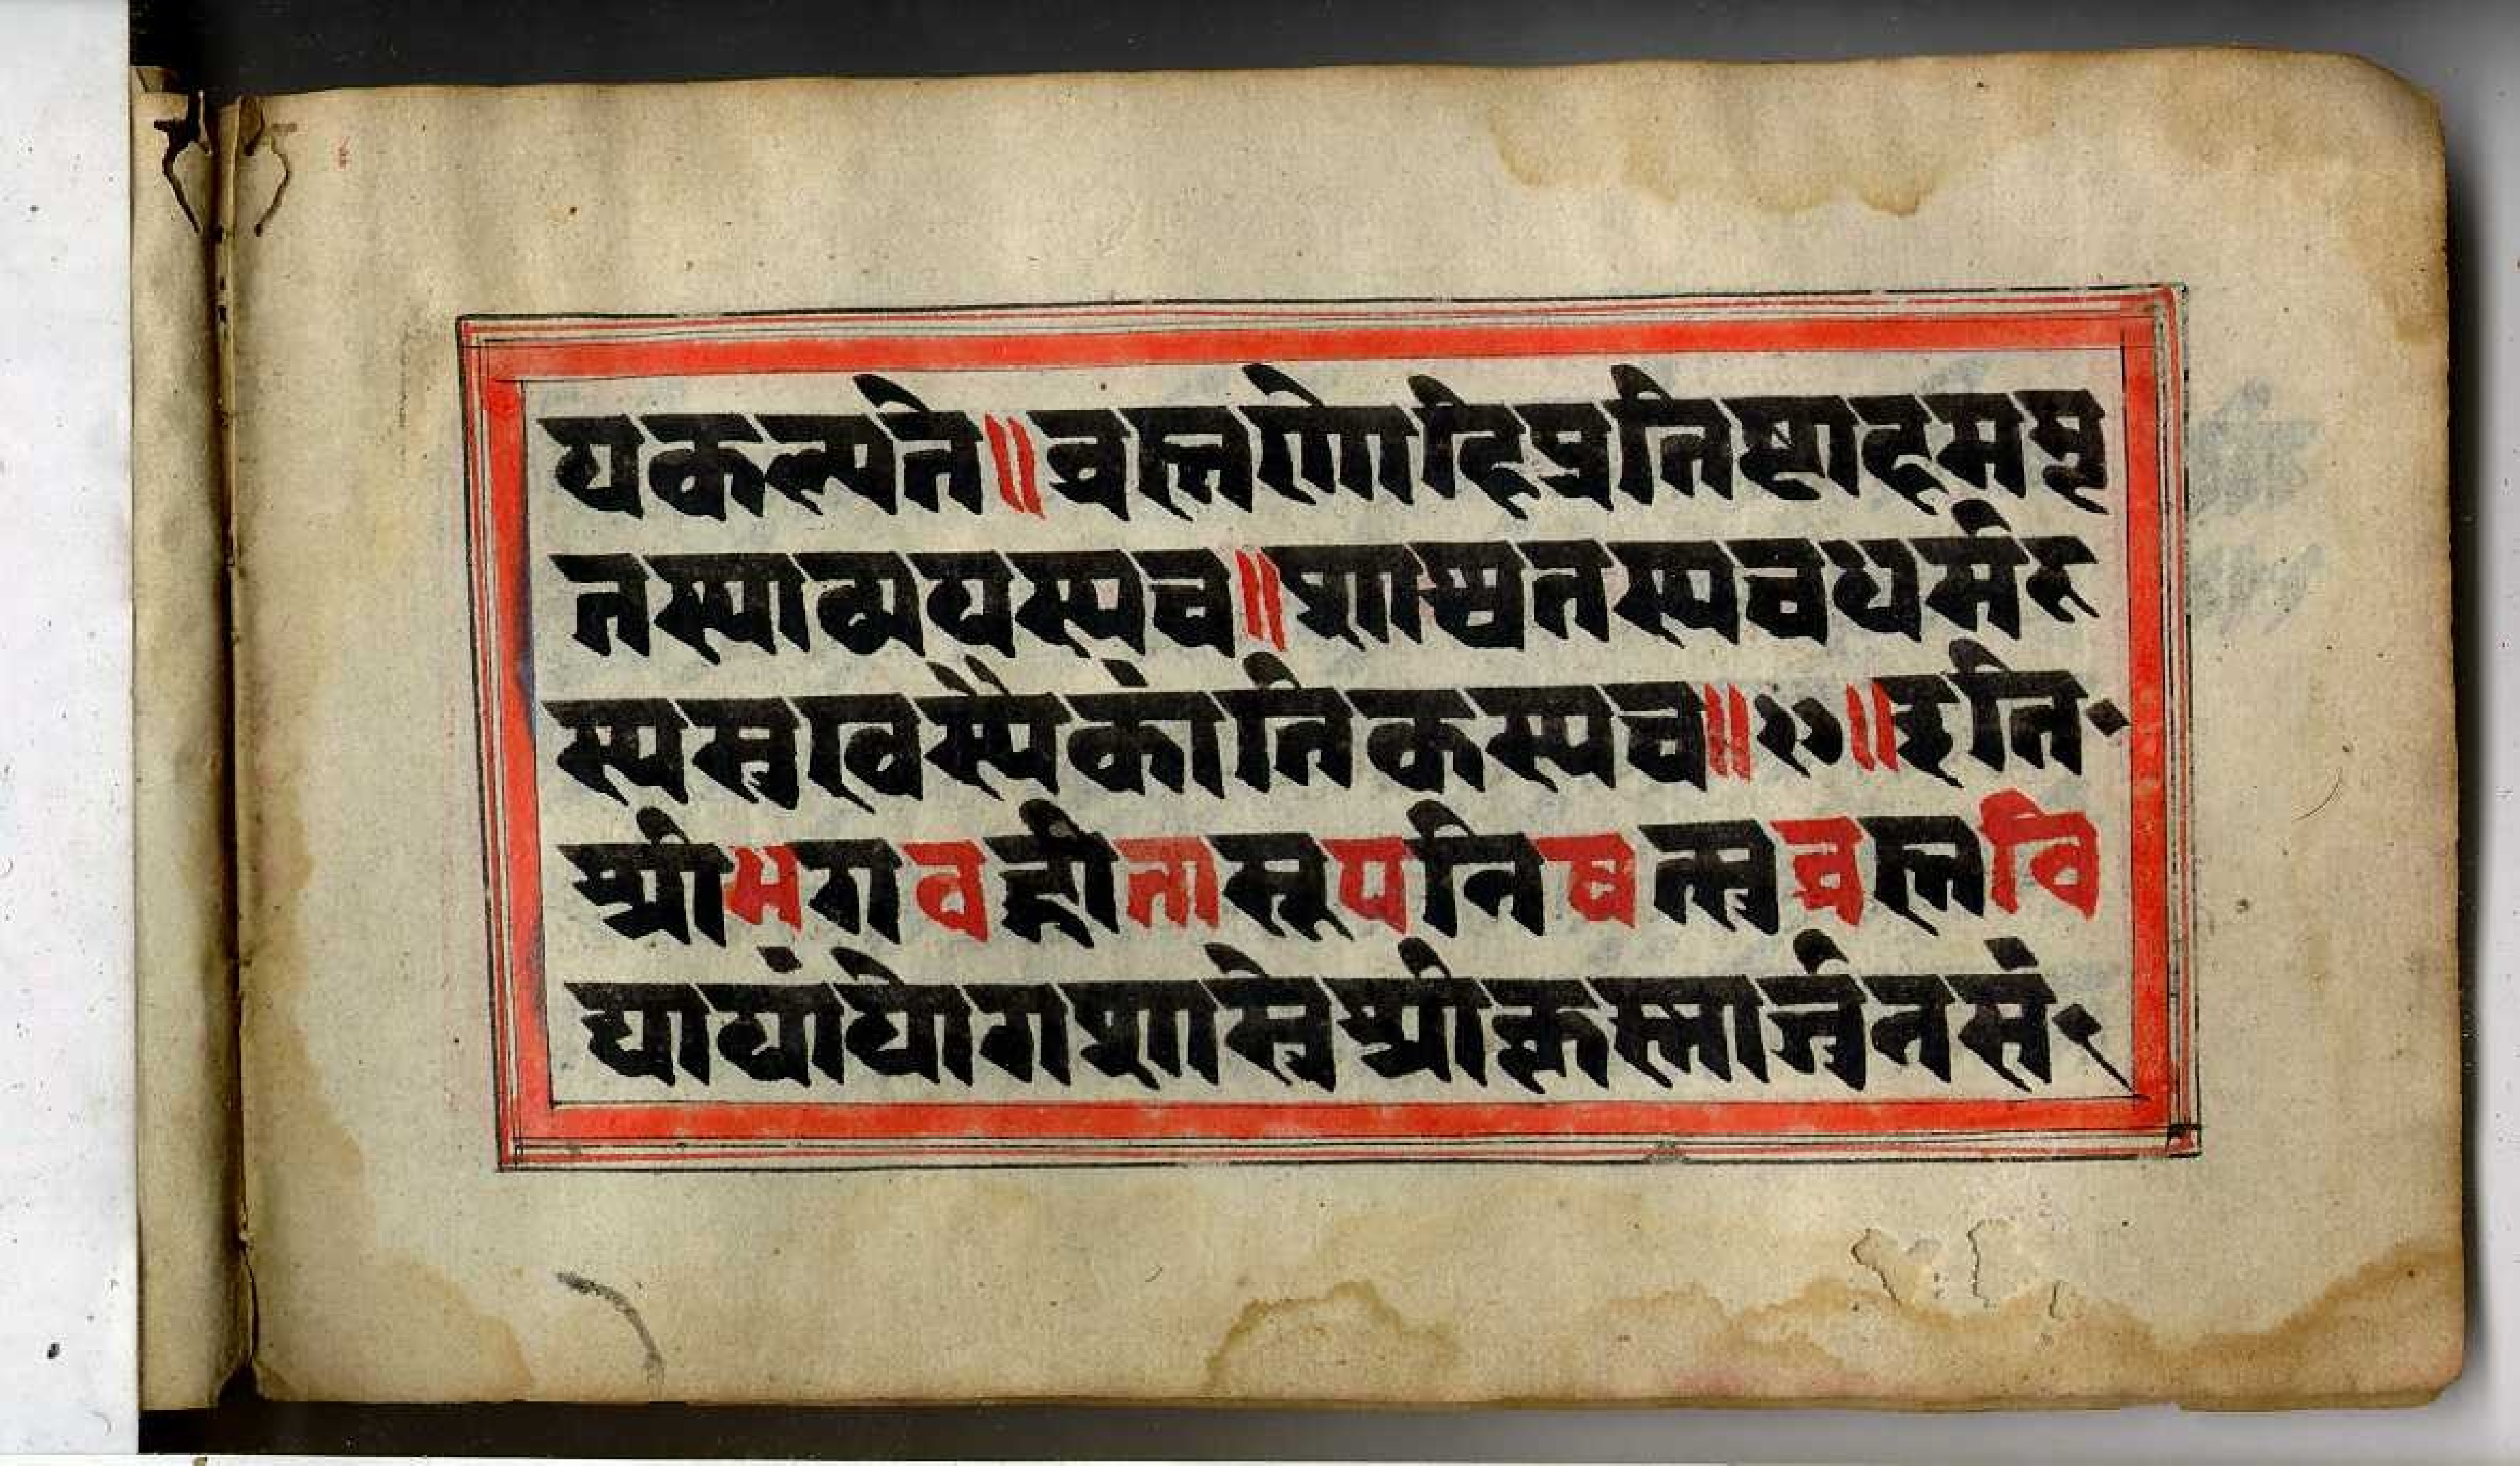 यकल्पते॥ब्रह्मणोहिप्रतिष्टाहममृ
तस्याव्ययस्यच॥शाश्वतस्यचधर्मस्
स्यसुखस्यैकांतिकस्यच॥२७॥इति॰
श्रीभगवद्गीतासूपनिषत्सुब्रह्मवि
द्यायांयोगशास्त्रेश्रीकृस्नार्जुनसं॰